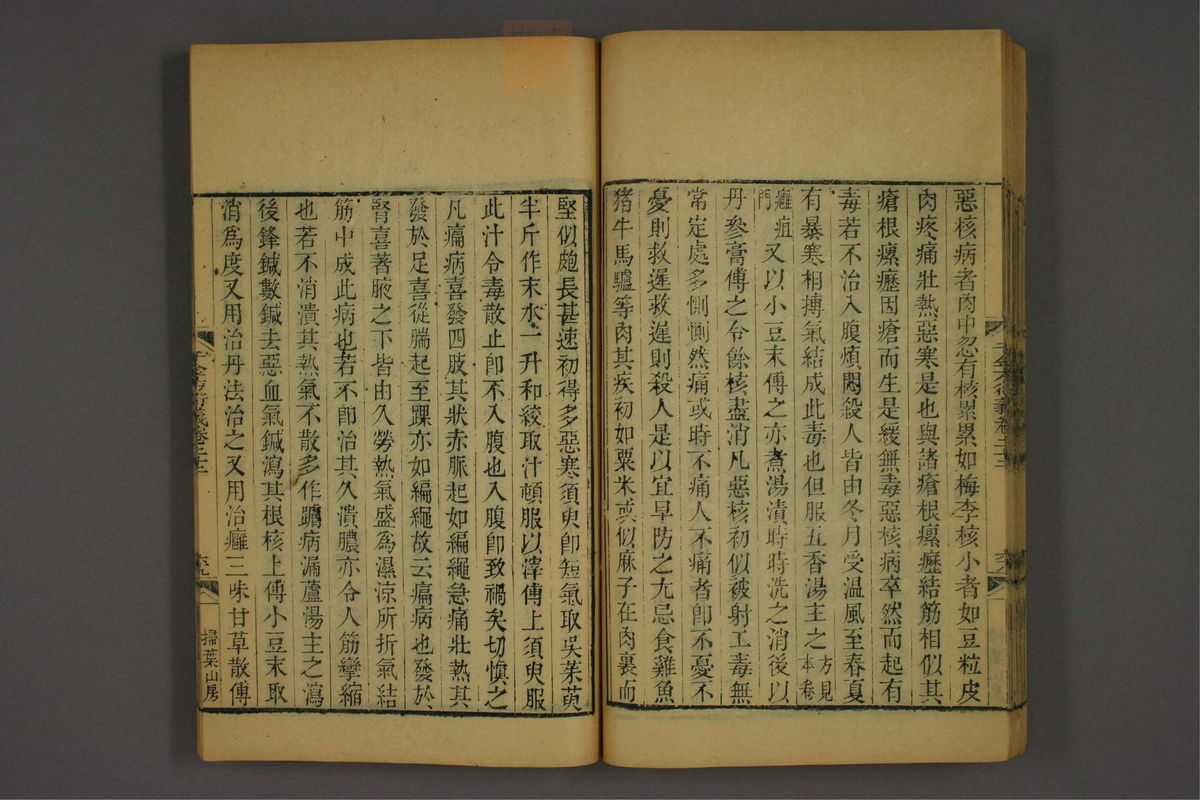 惡核病者肉中忽有核累累如梅李核小者如豆粒皮
肉疼痛壯熱惡寒是也與諸瘡根瘰癧結筋相似其
瘡根瘰癧因瘡而生是緩無毒惡核病卒然而起有
毒若不治入腹煩悶殺人皆由冬月受温風至春夏
有暴寒相搏氣結成此毒也但服五香湯主之方見本卷
癰疽門又以小豆末傅之亦煮湯漬時時洗之消後以
丹參膏傅之令餘核盡消凡惡核初似被射工毒無
常定處多惻惻然痛或時不痛人不痛者卽不憂不
憂則救遲救遲則殺人是以宜早防之尤忌食雞魚
猪牛馬驢等肉其疾初如粟米或似麻子在肉裏而
堅似皰長甚速初得多惡寒須臾卽短氣取吳茱萸
半斤作末水一升和絞取汁頓服以滓傅上須臾服
此汁令毒散止卽不入腹也入腹卽致禍矣切愼之
凡瘺病喜發四肢其狀赤脈起如編繩急痛壯熱其
發於足喜從腨起至踝亦如編繩故云瘺病也發於
腎喜著腋之下皆由久勞熱氣盛爲濕涼所折氣結
筋中成此病也若不卽治其久潰膿亦令人筋攣縮
也若不消潰其熱氣不散多作䠧病漏蘆湯主之瀉
後鋒鍼數鍼去惡血氣鍼瀉其根核上傅小豆末取
消爲度又用治丹法治之又用治癰三味甘草散傅
掃葉山房